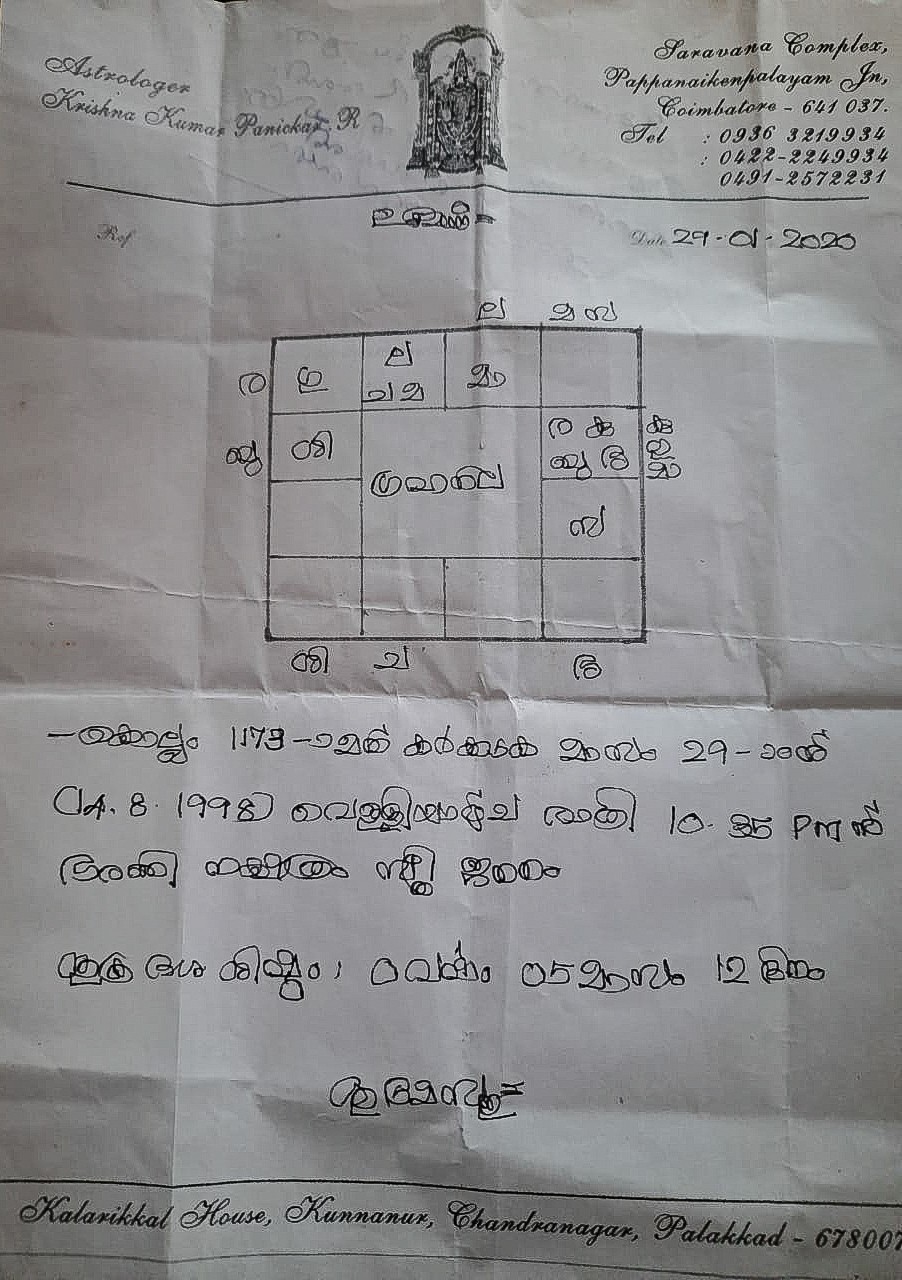 Astrologer
Krishna Kumar Panickar. R
Saravana Complex,
Pappanaikenpalayam Jn,
Coimbatore - 641 037.
Tel : 0936 3219934
: 0422-2249934
0491-2572231
Ref
Date 29-01-2020
ല മ സ
ര ഗു ല മാ
ച മ
ബു ശി ര കു കു
ബു ശു
ഗ്രഹനില
സ
ശി ച ശു
കൊല്ലം 1173-ാമത് കർക്കടക മാസം 29-ാംനു
(14. 8. 1998) വെള്ളിയാഴ്ച രാത്രി 10.35 PM ന്
ഭരണി നക്ഷത്രം സ്ത്രീ ജനനം
ശുക്ര ദശ ശിഷ്ടം: 0 വർഷം 05 മാസം 12 ദിനം
ശുഭമസ്തു
Kalarikkal House, Kunnanur, Chandranagar, Palakkad - 678007